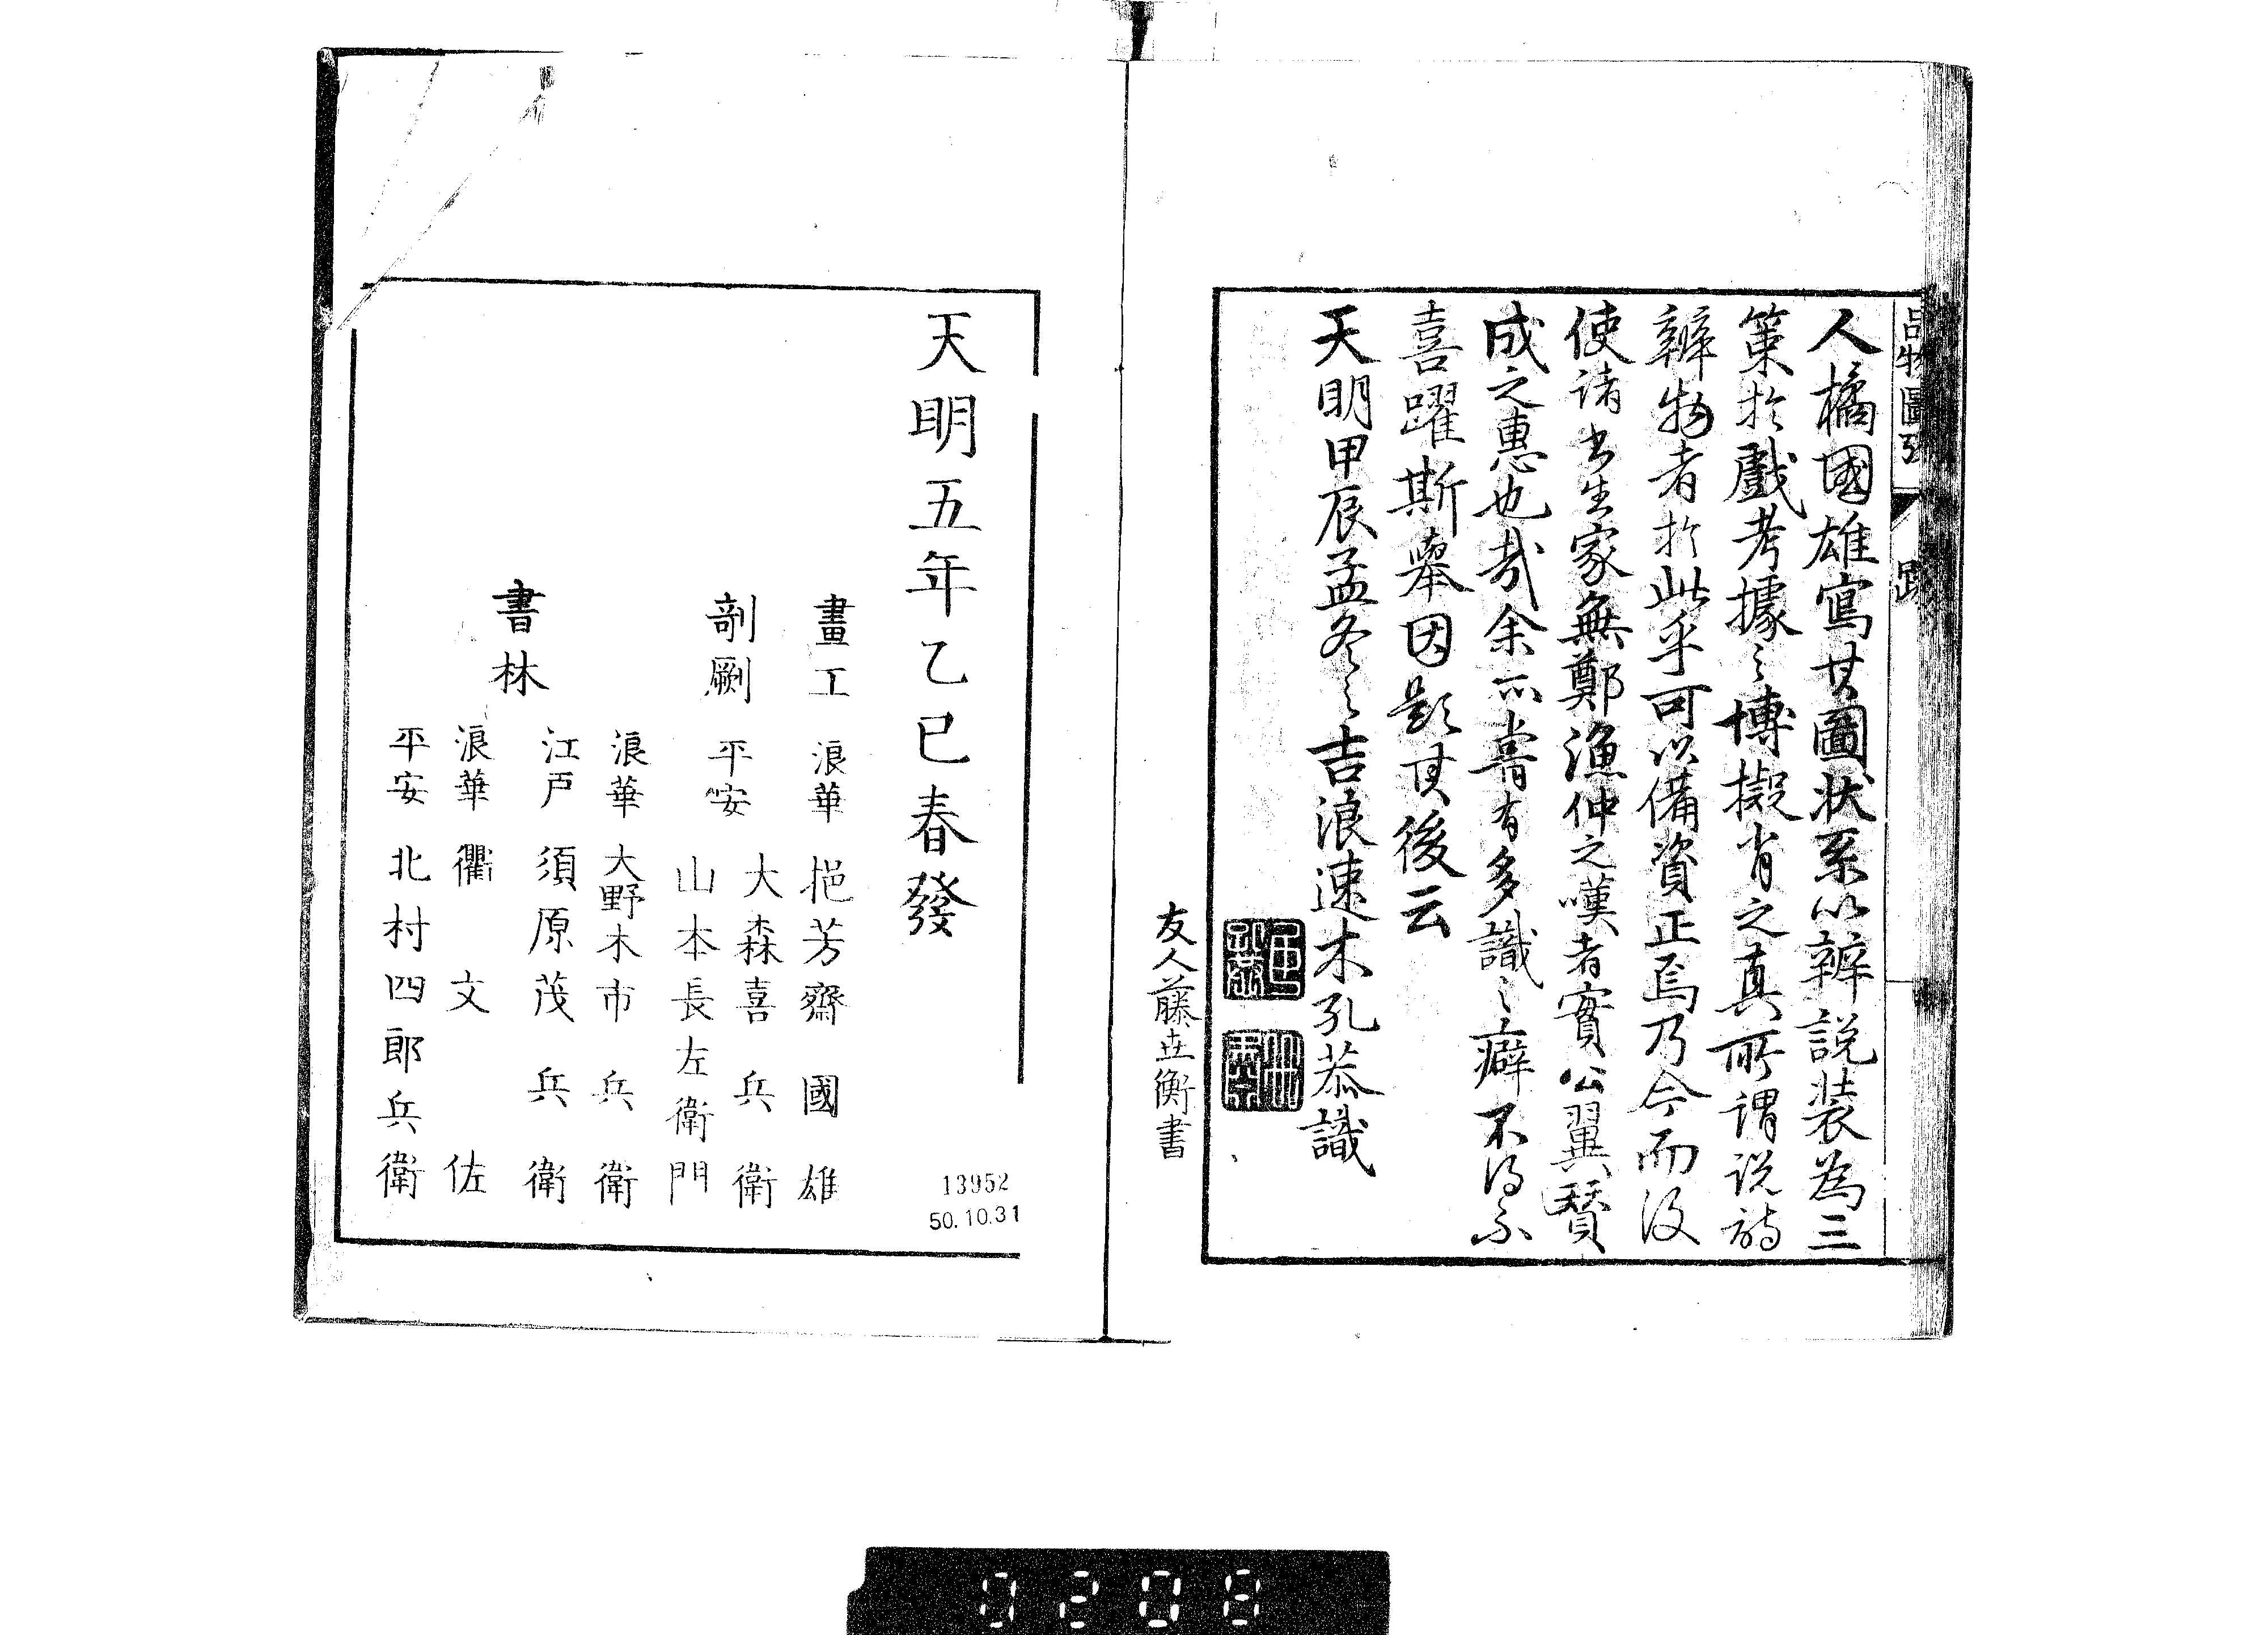 人橘國雄寫其圖状系以辨説装為三
策於戲考據之博擬肖之真所謂説詩
辨物者於此乎可以備資正焉乃今而後
使諸書生家無鄭漁仲之嘆者實公翼賛
成之惠也哉余亦嘗有多識之癖不得不
喜躍斯舉因題其後云
天明甲辰孟冬之吉浪速木孔恭識
友人藤世衡書
天明五年乙巳春發
畫工 浪華 挹芳齋國雄
剞劂 平安 大森喜兵衛
山本長左衛門
書林
浪華 大野木市兵衛
江戸 須原茂兵衛
浪華 衢文佐
平安 北村四郎兵衛
13952
50.10.31
0208